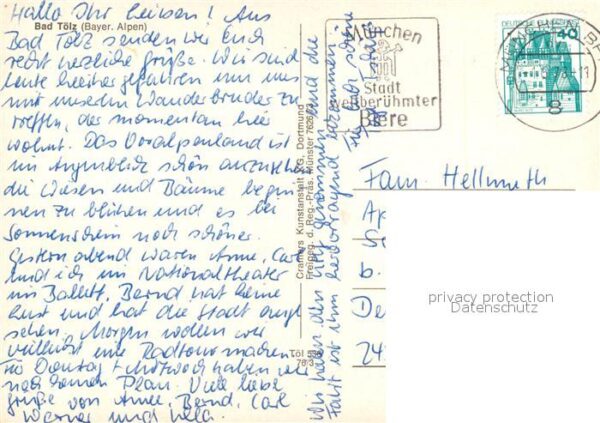 Hallo Ihr Lieben! Aus
Bad Tölz (Bayer. Alpen)
Bad Tölz senden wir Euch
recht herzliche Grüße. Wir sind
heute hierher gefahren um uns
mit unserem Wanderbruder zu
treffen, der momentan hier
wohnt. Das Voralpenland ist
im Augenblick schön anzusehen
die Wiesen und Bäume begin
nen zu blühen und es bei
Sonnenschein noch schöner.
Gestern abend waren Anne, Carl
und ich im Nationaltheater
im Ballett. Bernd hat keine
Lust und hat die Stadt ange
sehen. Morgen wollen wir
vielleicht eine Radtour machen
Für Dienstag + Mittwoch haben wir
noch keinen Plan. Viele liebe
Grüße von Anne, Bernd, Carl
Werner und
Wir haben den und die
Fahrt ist ihm hervorragend bekommen.
Cramers Kunstanstalt KG, Dortmund
Freigeg. d. Reg.-Präs. Münster 7626
Töl 536
München
Stadt
weltberühmter
Biere
DEUTSCHE BUNDESPOST
40
8
Fam. Hellmeth
b.
De
24
privacy protection
Datenschutz